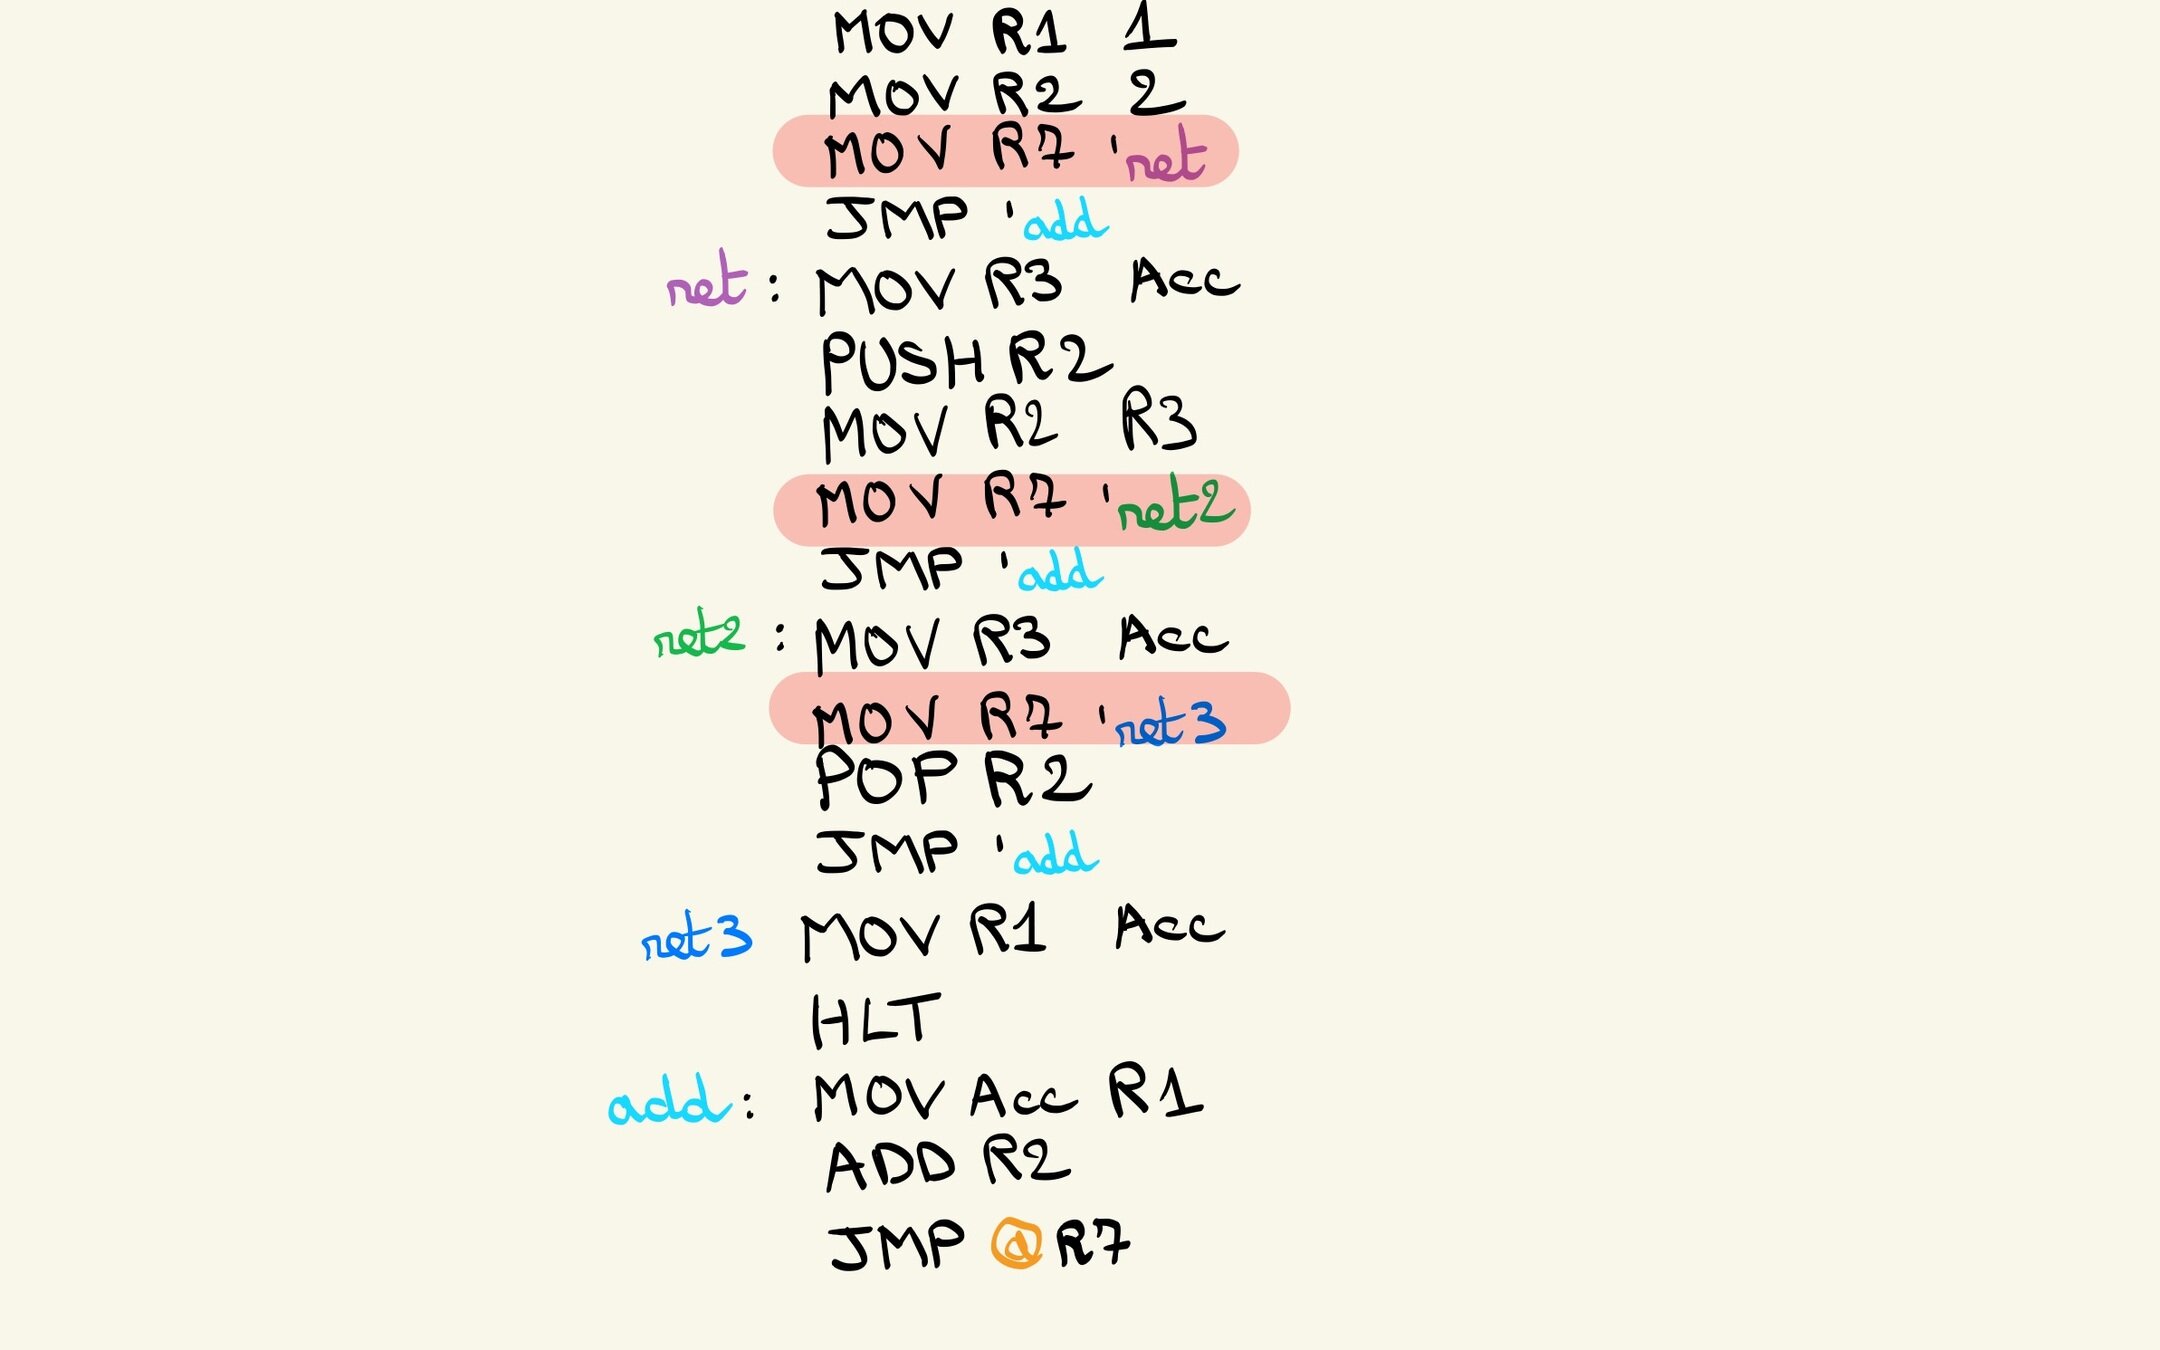 MOV R1 1
MOV R2 2
MOV R7 'ret
JMP 'add
ret : MOV R3 Acc
PUSH R2
MOV R2 R3
MOV R7 'ret2
JMP 'add
ret2 : MOV R3 Acc
MOV R7 'ret3
POP R2
JMP 'add
ret3 MOV R1 Acc
HLT
add : MOV Acc R1
ADD R2
JMP @ R7